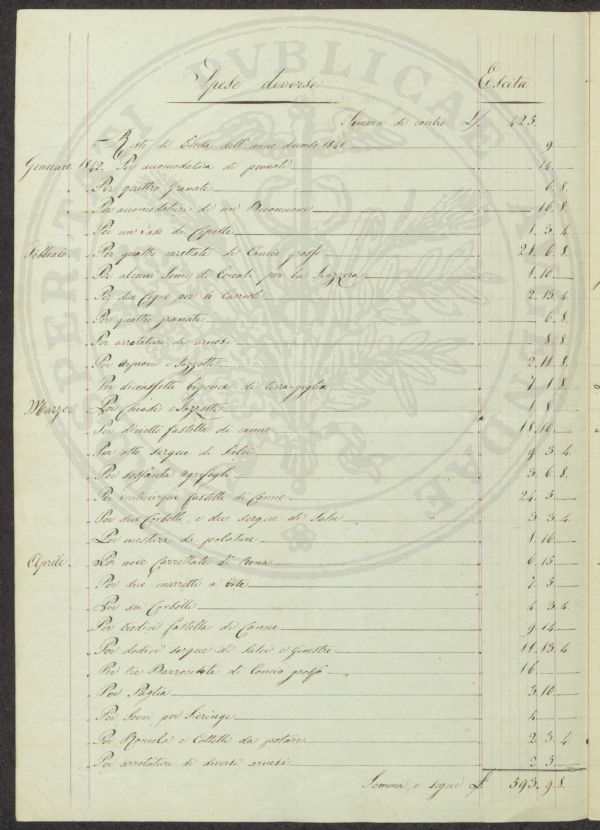 Spese diverse Escita
Somma di contro £ 423.
Resto di Escita dell' anno decorso 1841 9
Gennaio 1842. Per accomodatura di pennati 14
Per quattro granate 6. 8.
Per accomodatura di un 16. 8.
Per un Vaso da 1. 3. 4
Febbraio. Per quattro carrettate di Concio grosso 21. 6. 8.
Per alcuni Semi di per la 1. 10
Per due per le Carriole 2. 13. 4
Per quattro granate 6. 8
Per arrotature di arnesi 8. 8
Per e 2. 11. 8
Per diciassette bigonce di 7. 1. 8
Marzo. Per Chiodi e 1. 8
Per diciotto fastella di canne 18. 16
Per otto serque di Salci 9. 3. 4
Per sessanta 3. 6. 8
Per venticinque fastella di Canne 24. 5
Per due Corbelli, e due serque di Salci 3. 3. 4
Per mestura da potature 1. 16
Aprile. Per nove Carrettate di Rena 6. 15
Per due a vite 7. 5
Per sei Corbelli 4. 3. 4
Per tredici fastella di Canne 9. 14
Per dodici serque di Salci e Ginestre 11. 13. 4
Per tre Barrocciate di Concio grosso 16
Per Paglia 3. 10
Per Semi per 4
Per Roncola e Coltelli da potare 2. 3. 4
Per arrotature di diversi arnesi 2. 5
Somma e segue £ 593. 9. 8.
PERITURA PUBLICAE